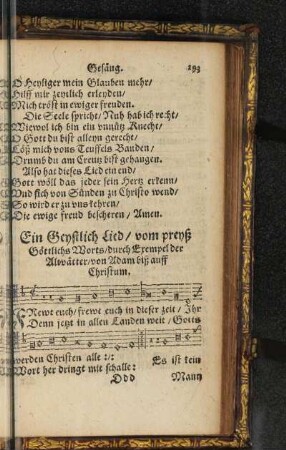 Gesäng. 193
O Heyliger mein Glauben mehr/
Hilff mir zeytlich erleyden/
Mich tröst in ewiger freuden.
Die Seele spricht/ Nuh hab ich recht/
Wiewol ich bin ein vnnütz Knecht/
O Gott du bist alleyn gerecht/
Löß mich vons Teuffels Banden/
Drumb du am Creutz bist gehangen.
Also hat dieses Lied ein end/
Gott wöll das jeder sein Hertz erkenn/
Vnd sich von Sünden zu Christo wend/
So wird er zu vns kehren/
Die ewige freud bescheren/ Amen.
Ein Geystlich Lied/ vom preyß
Göttlichs Worts/ durch Exempel der
Altvätter/ von Adam biß auff
Christum.
Frewt euch/ frewt euch in dieser zeit/ Ihr
Denn jetzt in allen Landen weit/ Gotts
werden Christen alle :/: Es ist kein
Wort her dringt mit schalle: 
Ddd Mann